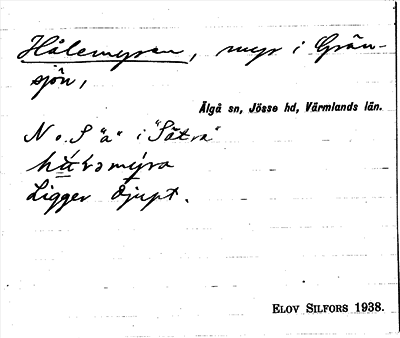 Hålemyran, myr i Grän-
sjön,
Älgå sn, Jösse hd, Värmlands län.
N o. S "a" i "Sätra"
Ligger djupt.
ELOV SILFORS 1938.